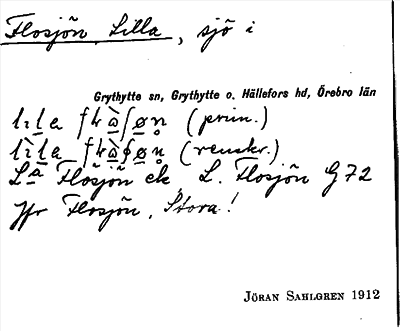 Flosjön, Lilla, sjö i
Grythytte sn, Grythytte o. Hällefors hd, Örebro län
(prim.)
(renskr.)
La Flosjön ek, L. Flosjön G 72
Jfr Flosjön, Stora!
JÖRAN SAHLGREN 1912